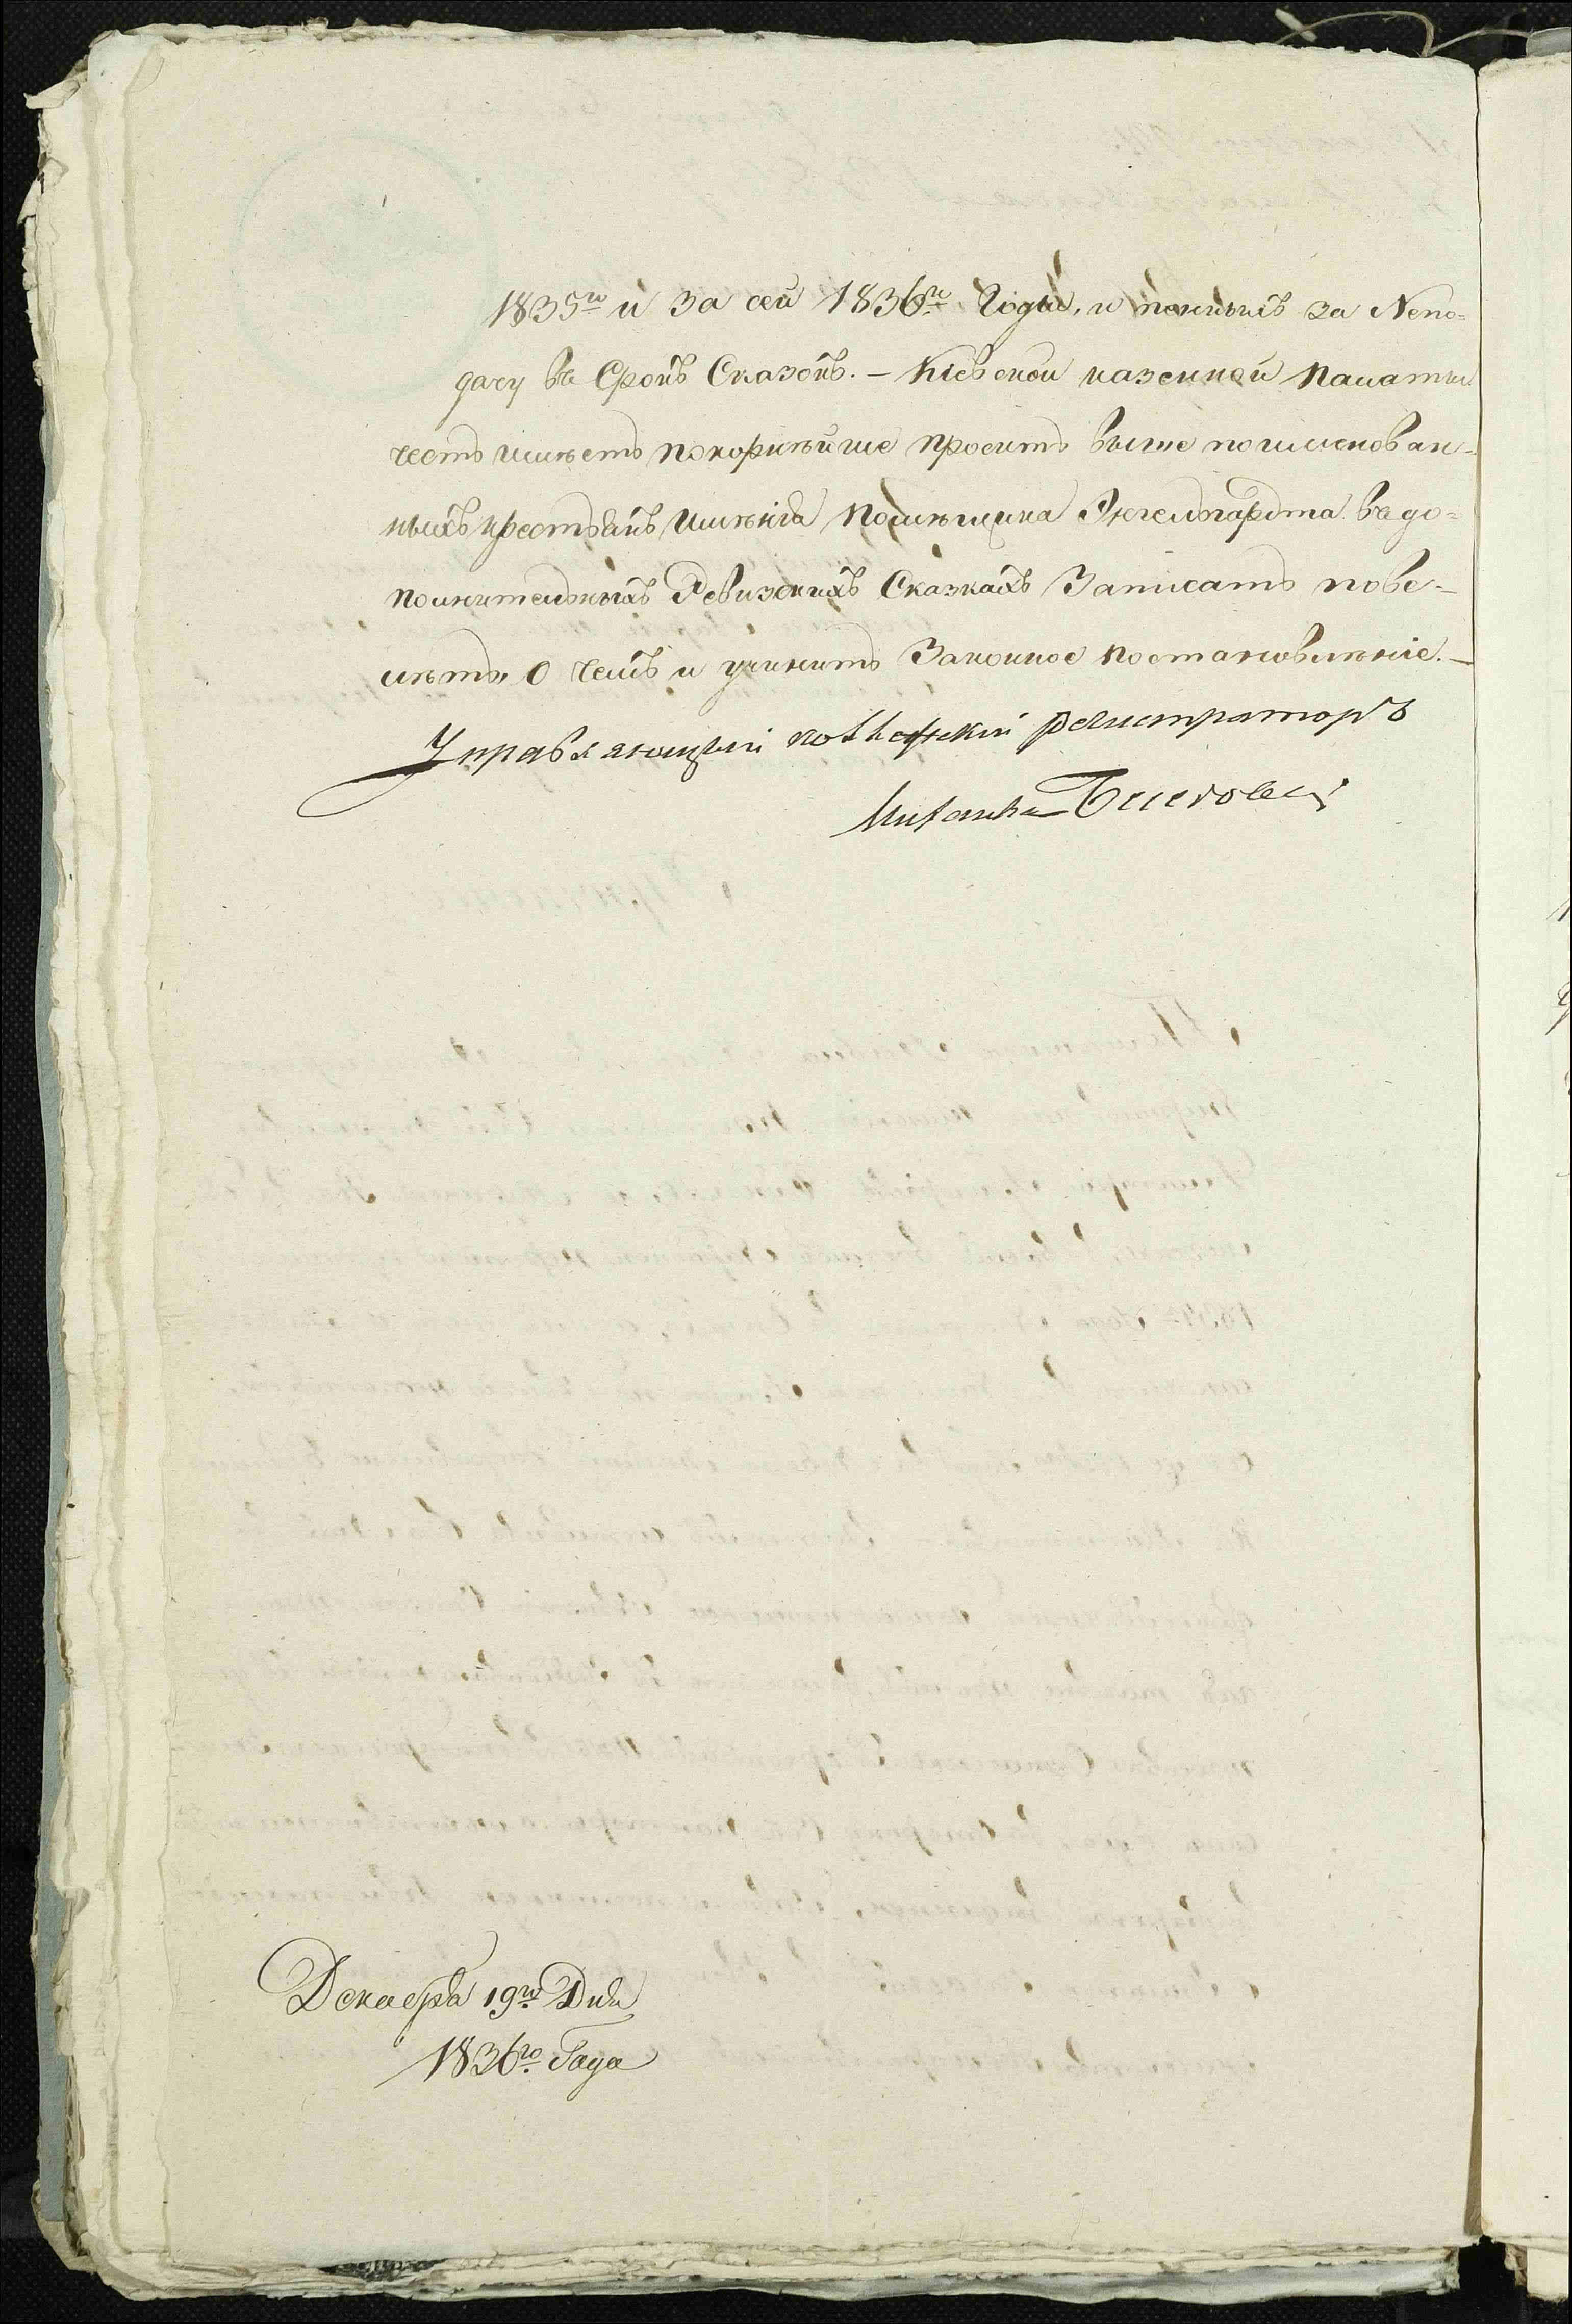 1835го и за сей 1836й Годы, и пенныхъ за Непо=
дачу въ Срокъ Сказокъ. – Кіевской казенной Палаты
честь имѣетъ покорнѣйше просить выше поименован=
ныхъ крестьянъ имѣнія Помѣщика Энгельгардта въ до=
полнительныхъ Ревизскихъ Сказкахъ Записать пове=
лѣть, о чемъ и учинить Законное постановленіе. –
Управляющій коллежскій регистраторъ
Декабря 19го Дня
1836го Года